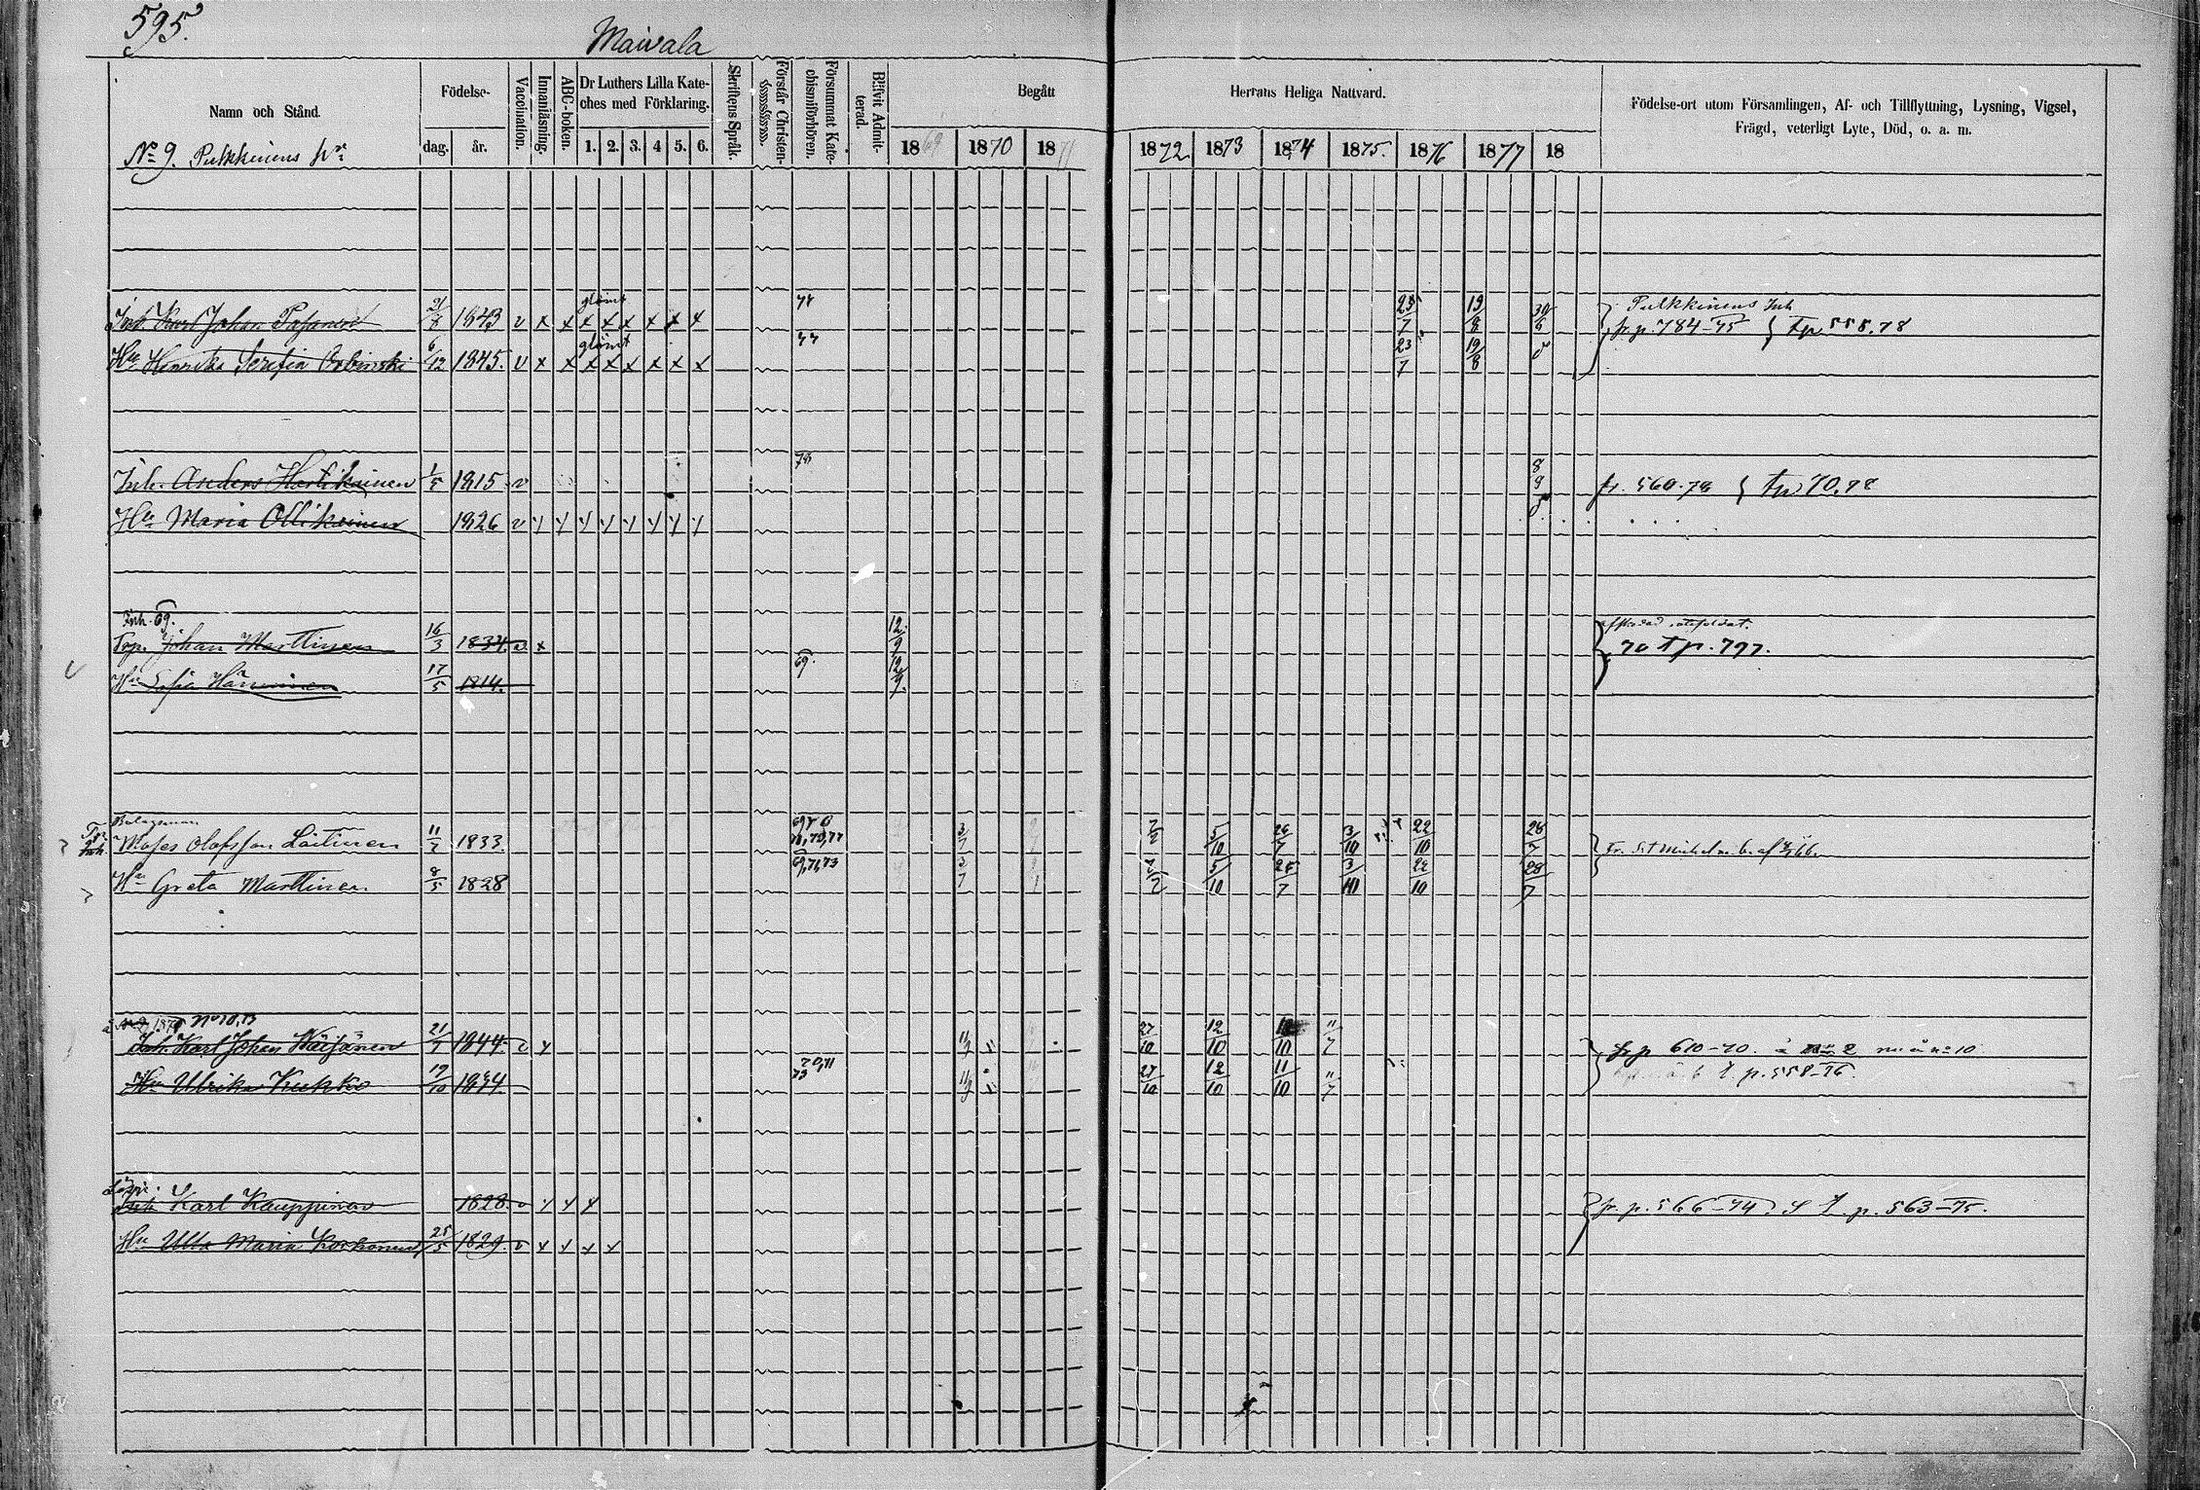 595.
Maivala
Namn och Stånd.
Födelse-
dag.
år.
Vaccination.
Innanläsning.
ABC-boken.
Dr Luthers Lilla Kate-
ches med Förklaring.
1. 2. 3. 4 5. 6.
Skriftens Språk.
Förstår Christen-
domsläran.
Försummat Kate-
chismiförhören.
Blifvit Admit-
terad.
Begått
Herrans Heliga Nattvard.
1869 1870 1871 1872 1873 1874 1875. 1876 1877 18
Födelse-ort utom Församlingen, Af- och Tillflyttning, Lysning, Vigsel,
Frägd, veterligt Lyte, Död, o. a. m.
No 9. Pulkkinens
glömt
Inh. Karl Johan 1843 v x x x x x x x x 23/7 19/8 30/6 Pulkkinens Inh.
fr. p. 784-75 } t p 558.78
glömt
Hu Henrika Serafia 6/12 1845. v x x x x x x x x 23/7 19/8
Inh. Anders Hartikainen 1/5 1815 v 8/9 fr. 560.78 { tp 70.78
Hu Maria Ollikainen 1826 v
Inh. 69.
Torp. Johan Marttinen 16/3 1834. v x 12/9
70 t p. 797.
Hu Sofia Hänninen 17/5 1814. 69. 12/9
Bolagsman
Moses Olofsson Laitinen 11/7 1833. 5/10 26/7 3/10 22/10 28/7
Hu Greta Marttinen 8/5 1828 69,71,73 3/7 5/10 26/7 3/10 22/10 28/7
No 10, 73
Inh. Karl Johan Wäisänen 21/7 1844. v x 27/10 12/10 11/7 fr p 610-70. å no 2 nu å no 10
Hu Ulrika Kukko 17/10 1844. 70,71 73 27/10 12/10 11/10 11/7 t. p. 558-76
Inh Karl Kauppinen 1828. v x x x fr. p. 566-74. & t. p. 563-75.
Hu Ulla Maria Korhonen 25/5 1829. v x x x x